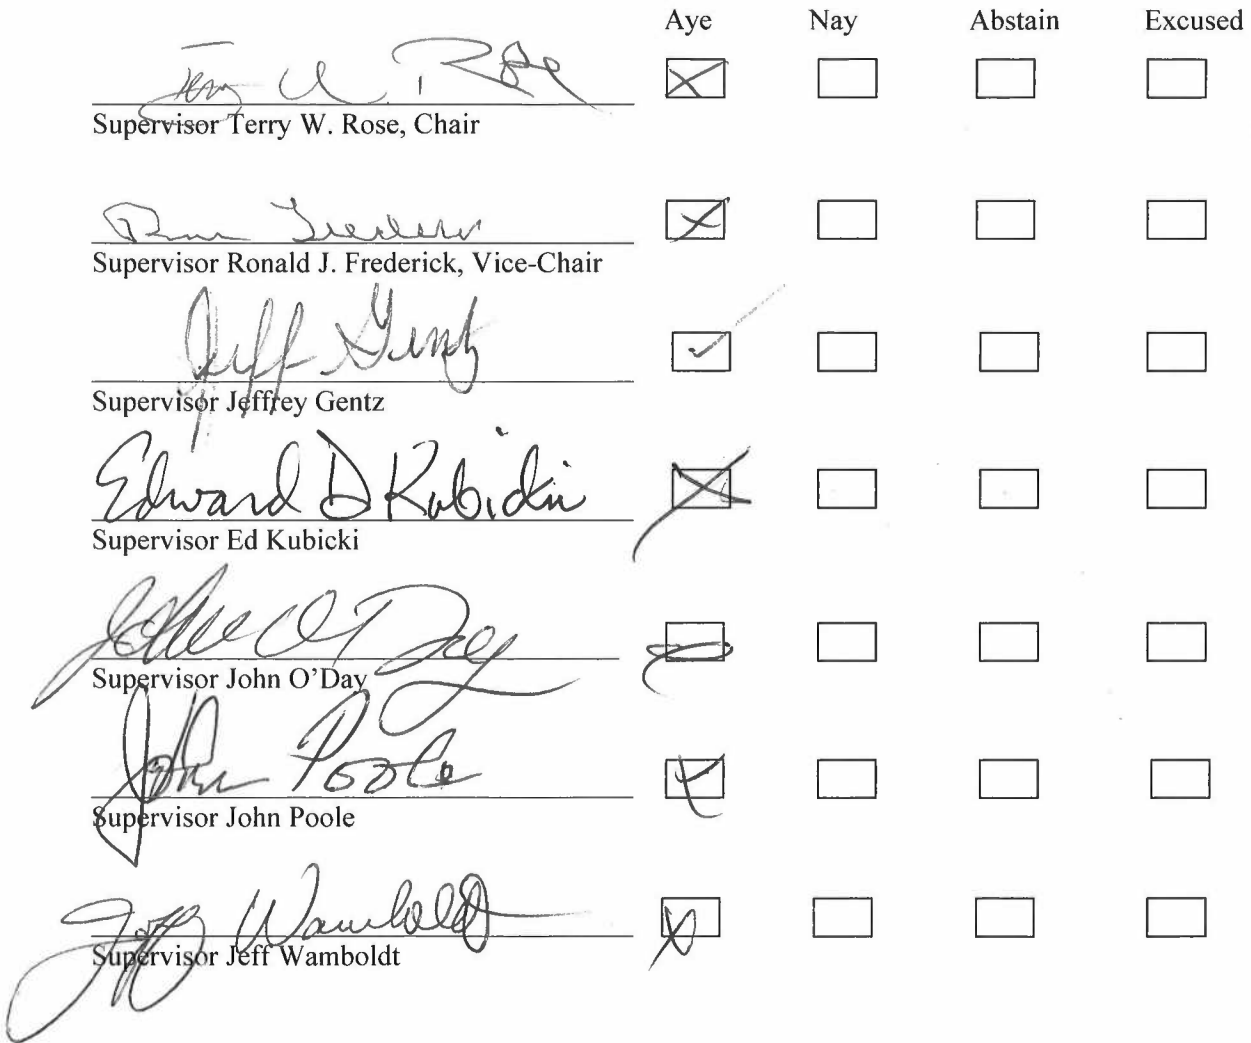 Aye Nay Abstain Excused
Terry W. Rose
Supervisor Terry W. Rose, Chair
Ron Frederick
Supervisor Ronald J. Frederick, Vice-Chair
Jeff Gentz
Supervisor Jeffrey Gentz
Edward D Kubicki
Supervisor Ed Kubicki
John O'Day
Supervisor John O'Day
John Poole
Supervisor John Poole
Jeff Wamboldt
Supervisor Jeff Wamboldt